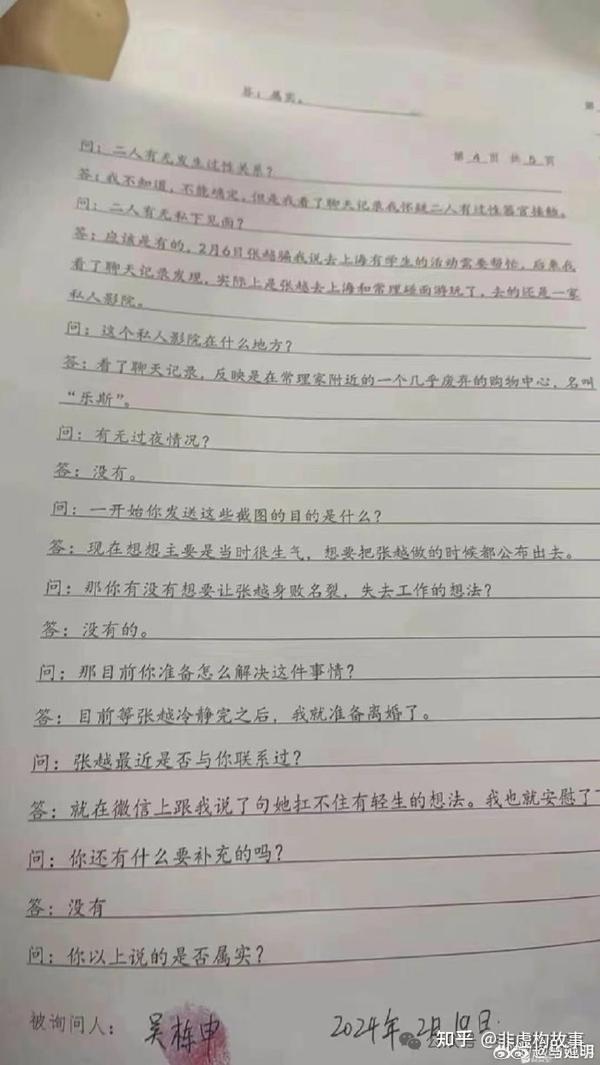 答：属实。
第
第 4 页 共 5 页
问：二人有无发生过性关系？
答：我不知道，不能确定，但是我看了聊天记录我怀疑二人有过性器官接触。
问：二人有无私下见面？
答：应该是有的，2月6日张越骗我说去上海有学生的活动需要帮忙，后来我
看了聊天记录发现，实际上是张越去上海和常理碰面游玩了，去的还是一家
私人影院。
问：这个私人影院在什么地方？
答：看了聊天记录，反映是在常理家附近的一个几乎废弃的购物中心，名叫
“乐斯”。
问：有无过夜情况？
答：没有。
问：一开始你发送这些截图的目的是什么？
答：现在想想主要是当时很生气，想要把张越做的时候都公布出去。
问：那你有没有想要让张越身败名裂，失去工作的想法？
答：没有的。
问：那目前你准备怎么解决这件事情？
答：目前等张越冷静完之后，我就准备离婚了。
问：张越最近是否与你联系过？
答：就在微信上跟我说了句她扛不住有轻生的想法。我也就安慰了
问：你还有什么要补充的吗？
答：没有
问：你以上说的是否属实？
被询问人：吴栋申 2024年2月19日
知乎@非虚构故事
@马延明